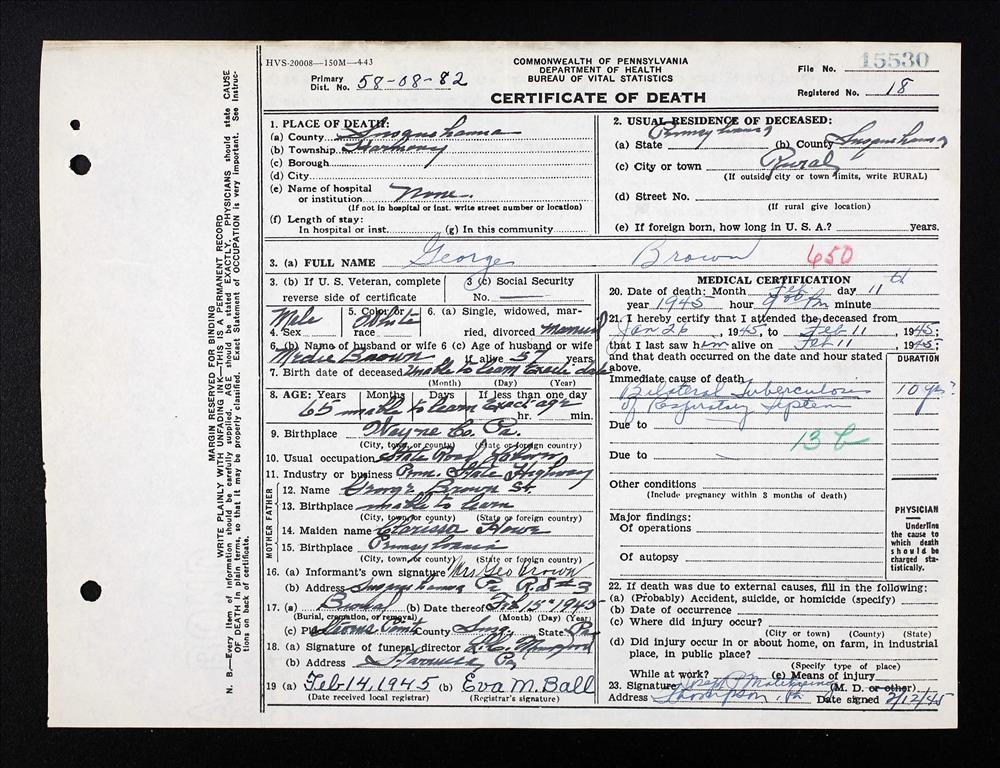 HVS-20008—150M—4-43
Primary Dist. No. 58-08-82
COMMONWEALTH OF PENNSYLVANIA
DEPARTMENT OF HEALTH
BUREAU OF VITAL STATISTICS
CERTIFICATE OF DEATH
File No. 15530
Registered No. 18
MARGIN RESERVED FOR BINDING
WRITE PLAINLY WITH UNFADING INK—THIS IS A PERMANENT RECORD
N. B.—Every item of information should be carefully supplied. AGE should be stated EXACTLY. PHYSICIANS should state CAUSE
OF DEATH in plain terms, so that it may be properly classified. Exact Statement of OCCUPATION is very important. See instruc-
tions on back of certificate.
1. PLACE OF DEATH:
(a) County Susquehanna
(b) Township Harmony
(c) Borough
(d) City
(e) Name of hospital
or institution None.
(If not in hospital or inst. write street number or location)
(f) Length of stay:
In hospital or inst. (g) In this community
2. USUAL RESIDENCE OF DECEASED:
(a) State Pennsylvania (b) County Susquehanna
(c) City or town Rural
(If outside city or town limits, write RURAL)
(d) Street No.
(If rural give location)
(e) If foreign born, how long in U. S. A.? years.
3. (a) FULL NAME George Brown 650
3. (b) If U. S. Veteran, complete
reverse side of certificate
3 (c) Social Security
No. —
4. Sex Male
5. Color or race White
6. (a) Single, widowed, mar-
ried, divorced Married
6. (b) Name of husband or wife
Brown
6 (c) Age of husband or wife
if alive 57 years
7. Birth date of deceased Unable to learn Exact date
(Month) (Day) (Year)
8. AGE: Years Months Days If less than one day
65 unable to learn Exact age hr. min.
9. Birthplace Wayne Co. Pa.
(City, town, or county) (State or foreign country)
10. Usual occupation State Road Laborer
11. Industry or business Penn. State Highway
FATHER
12. Name George Brown Sr.
13. Birthplace unable to learn
(City, town or county) (State or foreign country)
MOTHER
14. Maiden name Clarissa Howe
15. Birthplace Pennsylvania
(City, town or county) (State or foreign country)
16. (a) Informant's own signature Mrs Geo Brown
(b) Address Susquehanna Pa R.D #3
17. (a) Burial (b) Date thereof Feb 15 - 1945
(Burial, cremation, or removal) (Month) (Day) (Year)
(c) County State Pa
18. (a) Signature of funeral director
(b) Address Pa
19 (a) Feb-14, 1945 (b) Eva M. Ball
(Date received local registrar) (Registrar's signature)
MEDICAL CERTIFICATION
20. Date of death: Month Feb day 11th
year 1945 hour minute
21. I hereby certify that I attended the deceased from
Jan 26, 1945, to Feb 11, 1945;
that I last saw him alive on Feb 11, 1945;
and that death occurred on the date and hour stated
above.
DURATION
Immediate cause of death
Bilateral Tuberculosis 10 yrs?
of Respiratory System
Due to
13 b
Due to
Other conditions
(Include pregnancy within 3 months of death)
Major findings:
Of operations
Of autopsy
PHYSICIAN
Underline
the cause to
which death
should be
charged sta-
tistically.
22. If death was due to external causes, fill in the following:
(a) (Probably) Accident, suicide, or homicide (specify)
(b) Date of occurrence
(c) Where did injury occur?
(City or town) (County) (State)
(d) Did injury occur in or about home, on farm, in industrial
place, in public place?
(Specify type of place)
While at work? (e) Means of injury
23. Signature (M. D. or other)
Address Thompson, Pa. Date signed 2/12/45